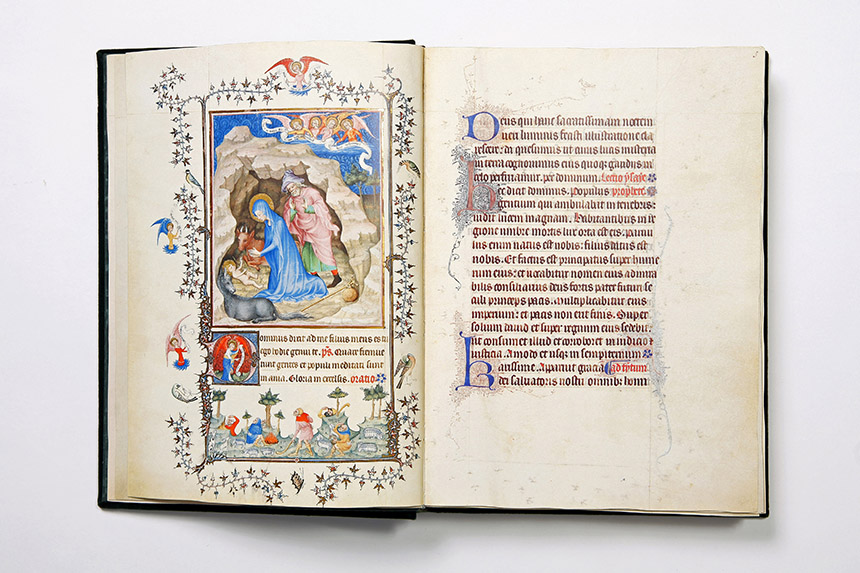 Dominus dicit ad me filius meus es tu
ego hodie genui te. ps. Quare fremue
runt gentes et populi meditati sunt
inania. Gloria in excelsis. oratio
Deus qui hanc sacratissimam noctem
veri luminis fecisti illustratione cla
rescere: da quesumus ut cuius lucis misteria
in terra cognovimus eius quoque gaudiis in
celo perfruamur. per dominum. Lectio ysaie
Hec dicit dominus. Populus prophete
gentium qui ambulabit in tenebris:
vidit lucem magnam. Habitantibus in re
gione umbre mortis lux orta est eis. paruu
lus enim natus est nobis: filius datus est
nobis. Et factus est principatus super hume
rum eius: et vocabitur nomen eius admira
bilis consiliarius deus fortis pater futuri se
culi princeps pacis. multiplicabitur eius
imperium: et pacis non erit finis. Super
solium david et super regnum eius sedebit.
ut confirmet illud et corroboret in iudicio et
iusticia. Amodo et usque in sempiternum
Karissime. Apparuit gracia ad tytum
dei salvatoris nostri omnibus homi